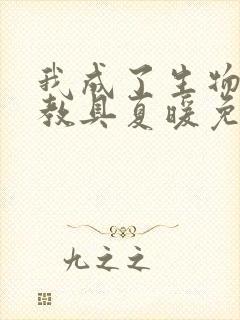 我成了生物
教具夏暖免
九之之